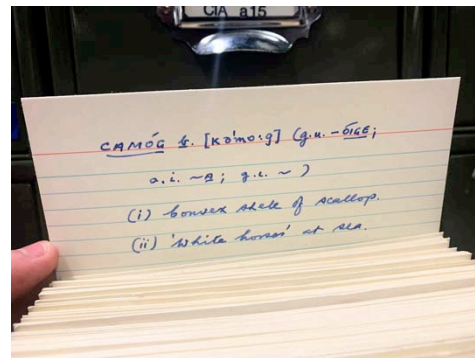 CIA a15
CAMÓG b. [kə'mo:g] (g.u. -ÓIGE;
a.i. ~a; g.i. ~)
(i) Convex shell of scallop.
(ii) 'White horses' at sea.